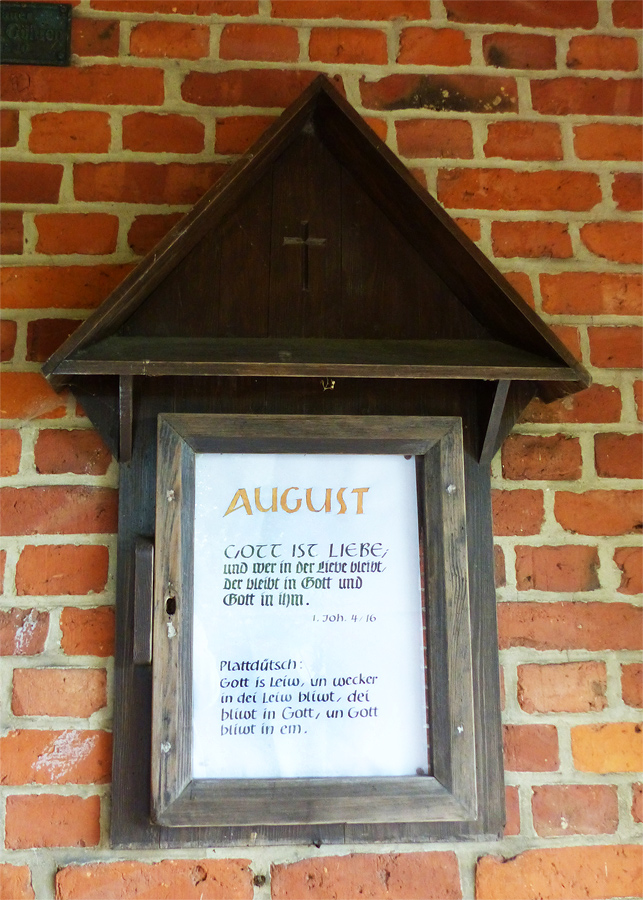 AUGUST
GOTT IST LIEBE,
und wer in der Liebe bleibt,
der bleibt in Gott und
Gott in ihm.
1. Joh. 4/16
Plattdütsch:
Gott is Leiw, un wecker
in dei Leiw bliwt, dei
bliwt in Gott, un Gott
bliwt in em.